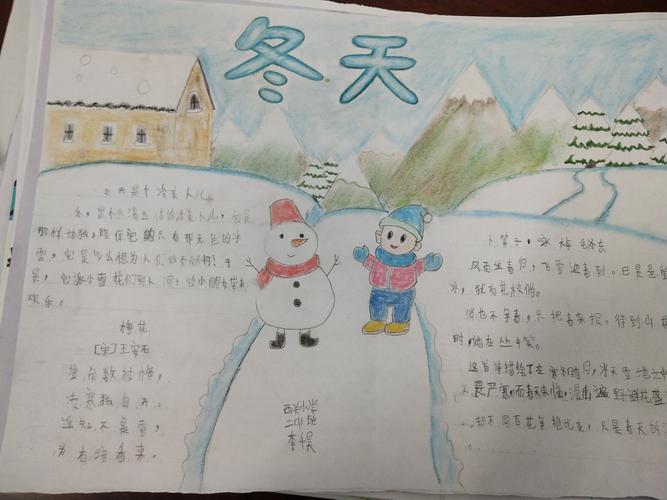 冬天
冬天是个冷美人儿
冬，是个冰清玉洁的冷美人儿，它是
那样孤独，陪伴它的只有那无色的冰
雪，它是多么想为人们做出贡献啊！于
是，它派小雪花们到人间，给小朋友带来
欢乐。
梅花
[宋]王安石
墙角数枝梅，
凌寒独自开。
遥知不是雪，
为有暗香来。
西关小学
二(1)班
李千昊
卜算子·咏梅 毛泽东
风雨送春归，飞雪迎春到。已是悬崖
冰，犹有花枝俏。
俏也不争春，只把春来报。待到山花
时，她在丛中笑。
这首词描绘了在寒冬腊月，冰天雪地之中
是严寒而春未来临，漫山遍野鲜花盛
却不同百花争艳比美，只是春天的